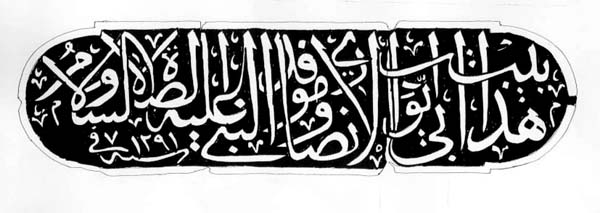 هذا بيت ابي ايوب الانصاري وموفد النبي عليه الصلاة والسلام في سنة ١٢٩١